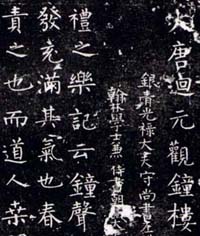 大唐迴元觀鐘樓
銀青光祿大夫守尚書左
翰林學士兼侍書朝大
禮之樂記云鐘聲
發充滿其氣也春
責之也而道人桒